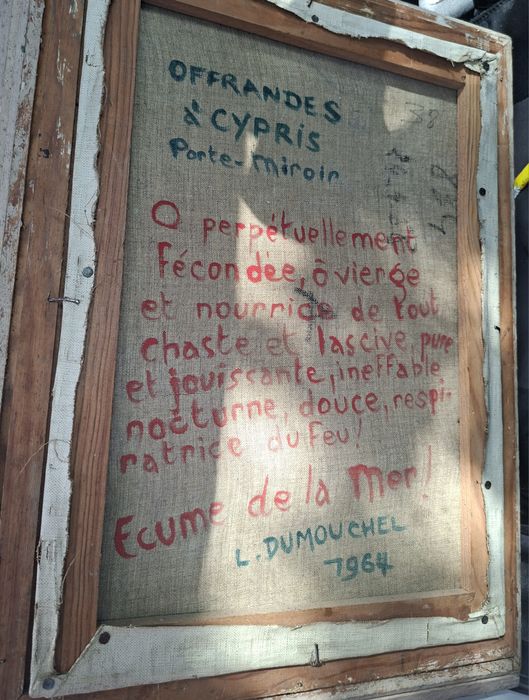 OFFRANDES
à CYPRIS
Porte-miroir
O perpétuellement
fécondée, ô vierge
et nourrice de tout
chaste et lascive, pure
et jouissante, ineffable
nocturne, douce, respi-
ratrice du feu!
Ecume de la Mer!
L. DUMOUCHEL
1964